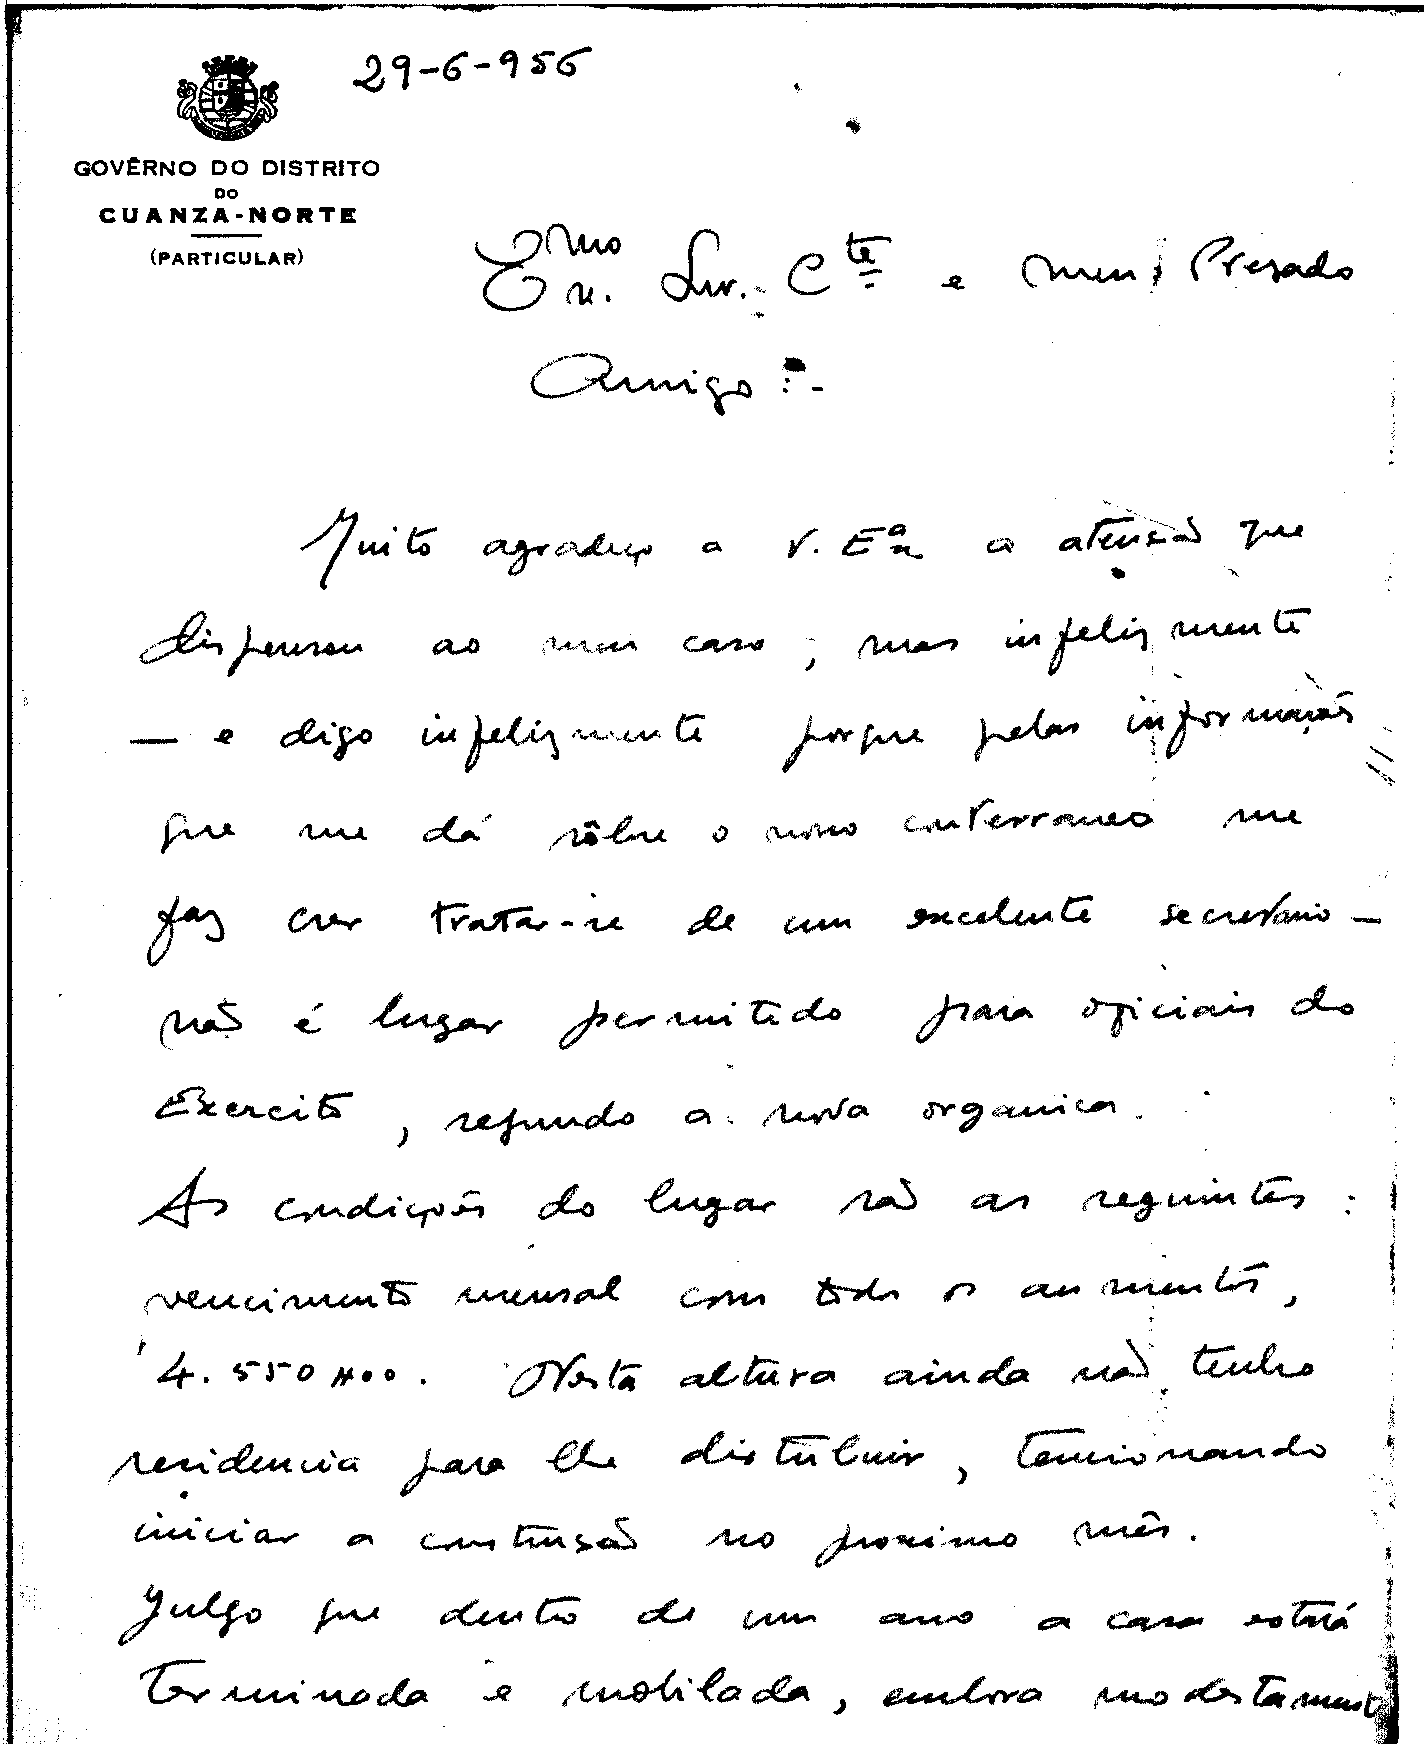 29-6-956
GOVÊRNO DO DISTRITO
DO
CUANZA-NORTE
(PARTICULAR)
Exmo. Snr. Cte e meu Presado
Amigo :-
Muito agradeço a V. Exa a atensão que
dispensou ao meu caso; mas infelizmente
— e digo infelizmente porque pelas informações
que me dá sôbre o nosso conterraneo me
faz crer tratar-se de um excelente secretario —
não é lugar permitido para oficiais do
Exercito, segundo a nova organica.
As condições do lugar são as seguintes:
vencimento mensal com todos os aumentos,
4.550$00. Nesta altura ainda não tenho
residencia para lhe distribuir, tencionando
iniciar a construsão no proximo mês.
Julgo que dentro de um ano a casa estará
terminada e mobilada, embora modestamente